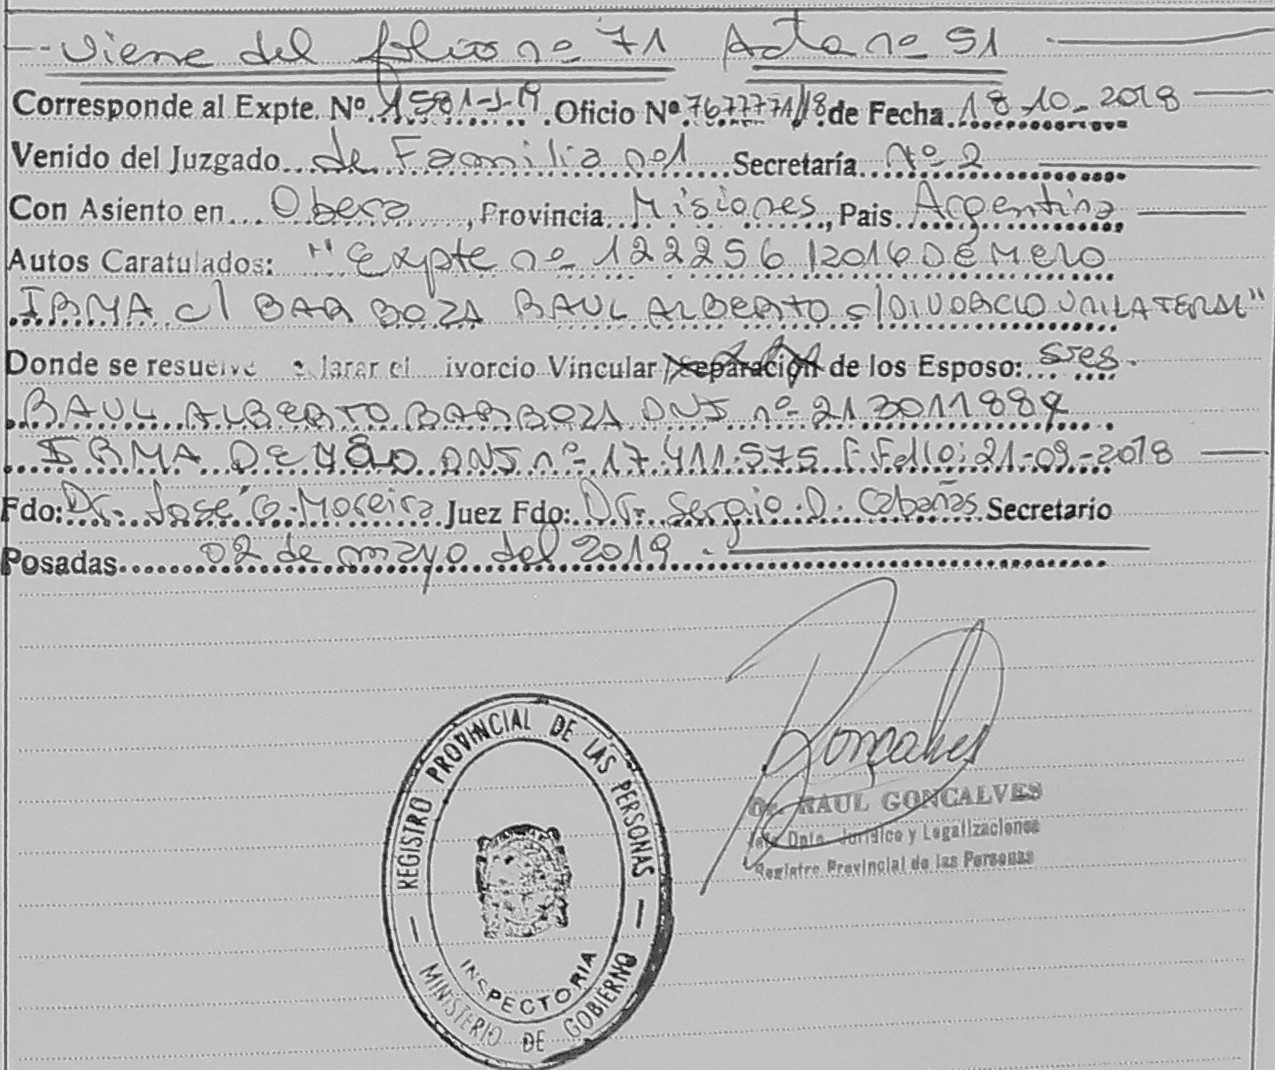 viene del folio nº 71 Acta nº 51
Corresponde al Expte. Nº 1581-J-19 Oficio Nº 7677771/18 de Fecha 18-10-2018
Venido del Juzgado de Familia nº1 Secretaría Nº 2
Con Asiento en Obera, Provincia Misiones, Pais Argentina
Autos Caratulados: "Expte nº 122256/2016 DE MELO
IRMA c/ BARBOZA RAUL ALBERTO s/DIVORCIO UNILATERAL"
Donde se resuelve larar el ivorcio Vincular separación de los Esposo: sres.
RAUL ALBERTO BARBOZA DNI nº 21301188
IRMA DE MELO DNI nº 17.411.575 F.Fello: 21-09-2018
Fdo: Dr. José G. Moreira Juez Fdo: Dr. Sergio D. Cabañas Secretario
Posadas 02 de mayo del 2019.
Goncalves
Dr. RAUL GONCALVES
Jefe Dpto. Jurídico y Legalizaciones
Registro Provincial de las Personas
REGISTRO PROVINCIAL DE LAS PERSONAS
INSPECTORIA
MINISTERIO DE GOBIERNO